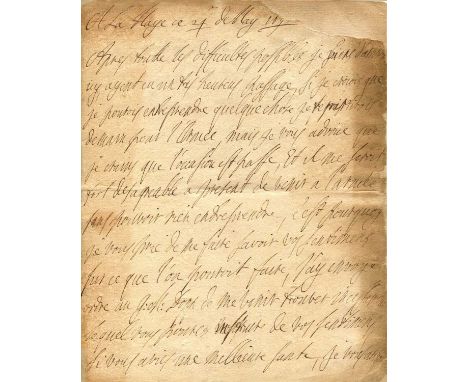 A La Haye ce de May
Apres toutte les difficultes possible je suis
ny ayent eu un tres heureux passage. Si je croiois que
je pourois entreprendre quelque chose je
demain pour l'Armee mais je vous advoue que
je crains que l'ocasion est passe. Et il me seroit
fort desagreable a present de venir a l'armee
sans pouvoir rien entreprendre, c'est pourquoy
je vous prie de me faire savoir vos sentiments
sur ce que l'on pouroit faire, j'ay envoye
ordre au de me venir trouver
lequel vous pouvez instruire de vos sentiments
Si vous avies une meilleure sante, je